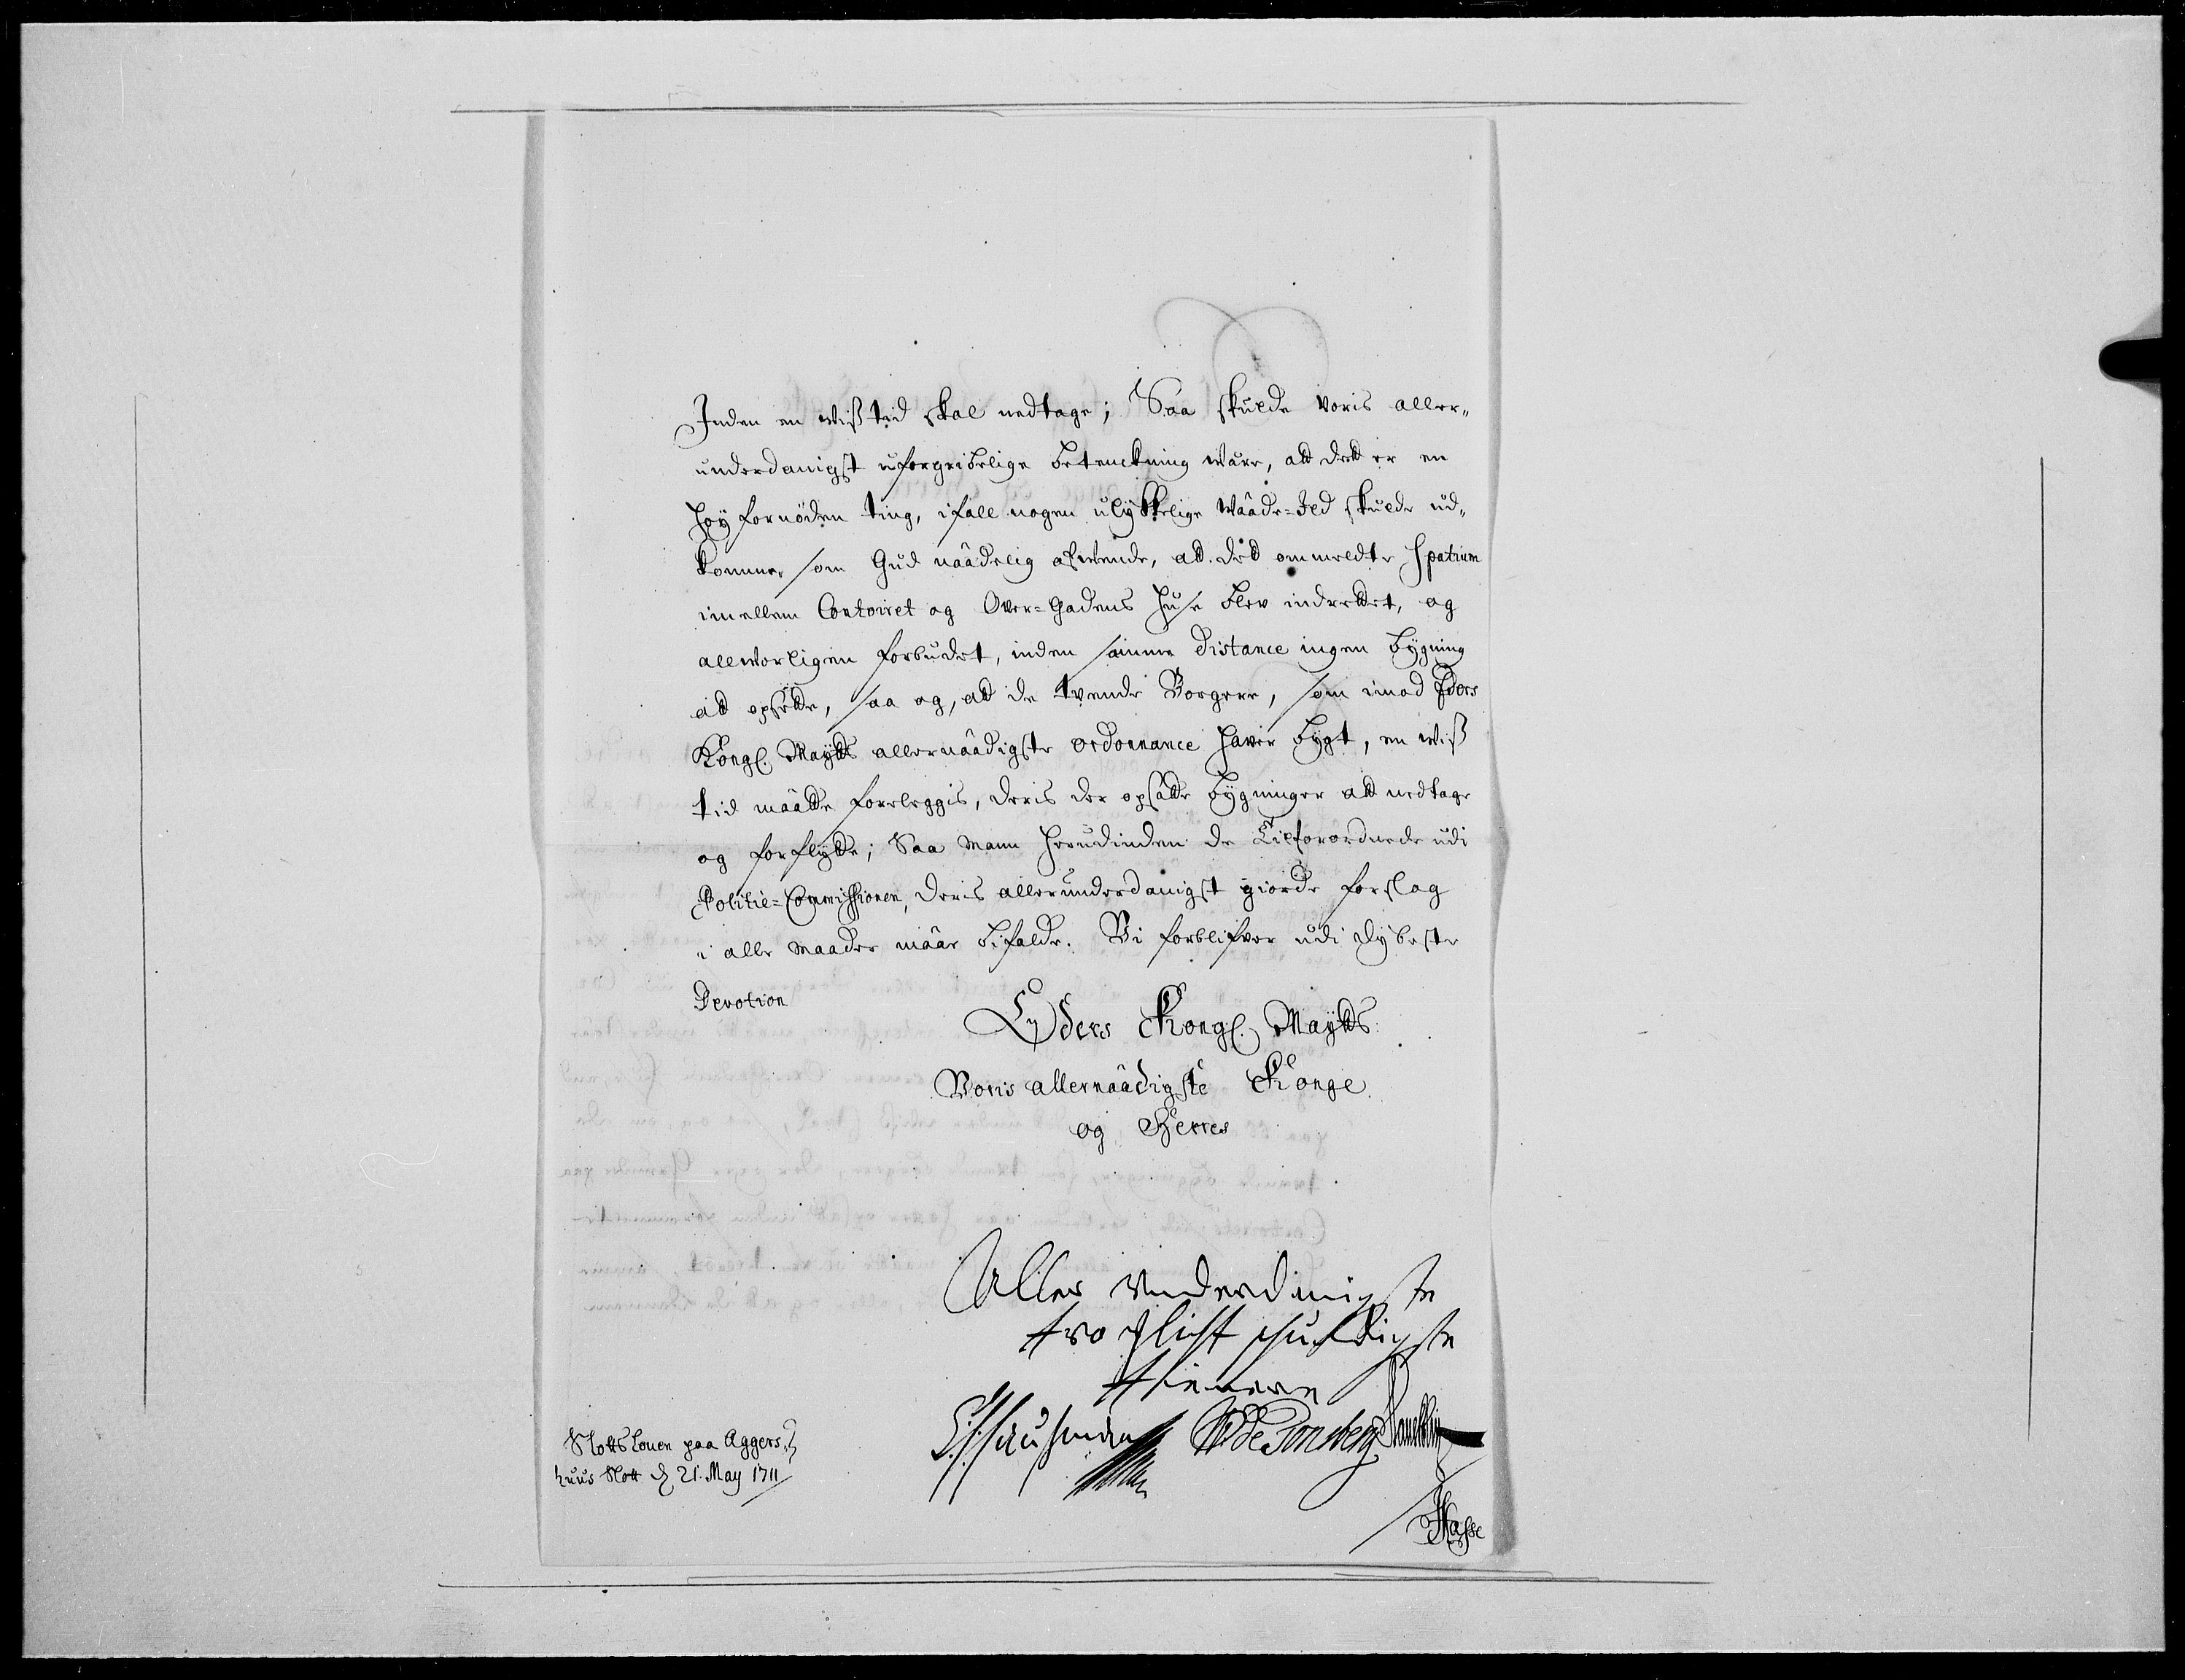 Inden en wiß tid skal nedtage; Saa skulde voris aller„
underdanigst uforgribelige betenckning være, att dett er en
høy fornøden ting, ifall nogen ulykkelige Wåade-Ild skulde ud„
komme, som Gud nåadelig afwende, at det ommeldte Spatium
imellem Contoiret og Over-Gadens huse blev indrettet, og
allworligen forbudet, inden samme distance ingen bygning
att opsette, saa og, att de tvende Borgere, som imod Eders
Kongl. Maytts allernåadigste ordonnance haver bygt, en wiß
tid måatte foreleggis, deris der opsatte bygninger att nedtage
og forflytte; Saa mann herudinden de Tilforordnede udi
Politie-Commissionen, deris allerunderdanigst giorde forslag
i alle maader måae bifalde. Vi forblifver udi dybeste
Devotion
Eyders Kongl. Maytts:
Voris allernåadigste Konge
og Herres
Aller underdanigste
tro plict schuldigste
tienere
de Tonsberg
Slottsloven paa Aggers„
huus Slott d 21. May 1711
Hasse